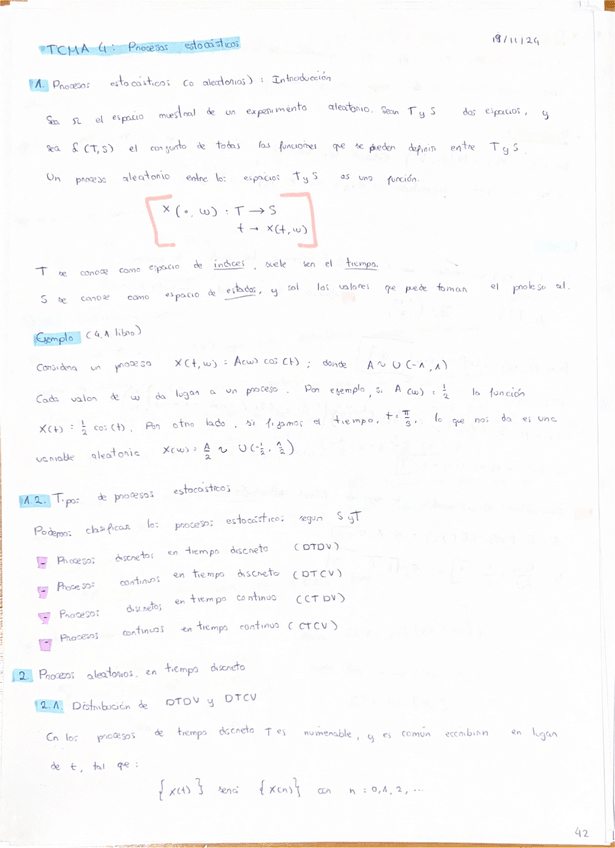 TEMA 4: Procesos estocásticos
19/11/24
1. Procesos estocásticos (o aleatorios): Introducción
Sea Ω el espacio muestral de un experimento aleatorio. Sean T y S dos espacios, y
sea S (T,S) el conjunto de todas las funciones que se pueden definir entre T y S.
Un proceso aleatorio entre los espacios T y S es una función.
X(•, ω) : T → S
t → X(t, ω)
T se conoce como espacio de índices, suele ser el tiempo.
S se conoce como espacio de estados, y sol los valores que puede tomar el proceso al.
Ejemplo (4.1 libro)
Considera un proceso X(t,ω) = A(ω) cos(t) ; donde A ~ U(-1,1)
Cada valor de ω da lugar a un proceso. Por ejemplo, si A(ω) = 1/2 la función
X(t) = 1/2 cos(t). Por otro lado, si fijamos el tiempo, t = π/3, lo que nos da es una
variable aleatoria X(ω) = A/2 ~ U(-1/2, 1/2)
1.2. Tipos de procesos estocásticos
Podemos clasificar los procesos estocásticos según S y T
- Procesos discretos en tiempo discreto (DTDV)
- Procesos continuos en tiempo discreto (DTCV)
- Procesos discretos en tiempo continuo (CTDV)
- Procesos continuos en tiempo continuo (CTCV)
2. Procesos aleatorios en tiempo discreto
2.1. Distribución de DTDV y DTCV
En los procesos de tiempo discreto T es numerable, y es común escribir n en lugar
de t, tal que:
{X(t)} será {X(n)} con n = 0,1,2,...
42